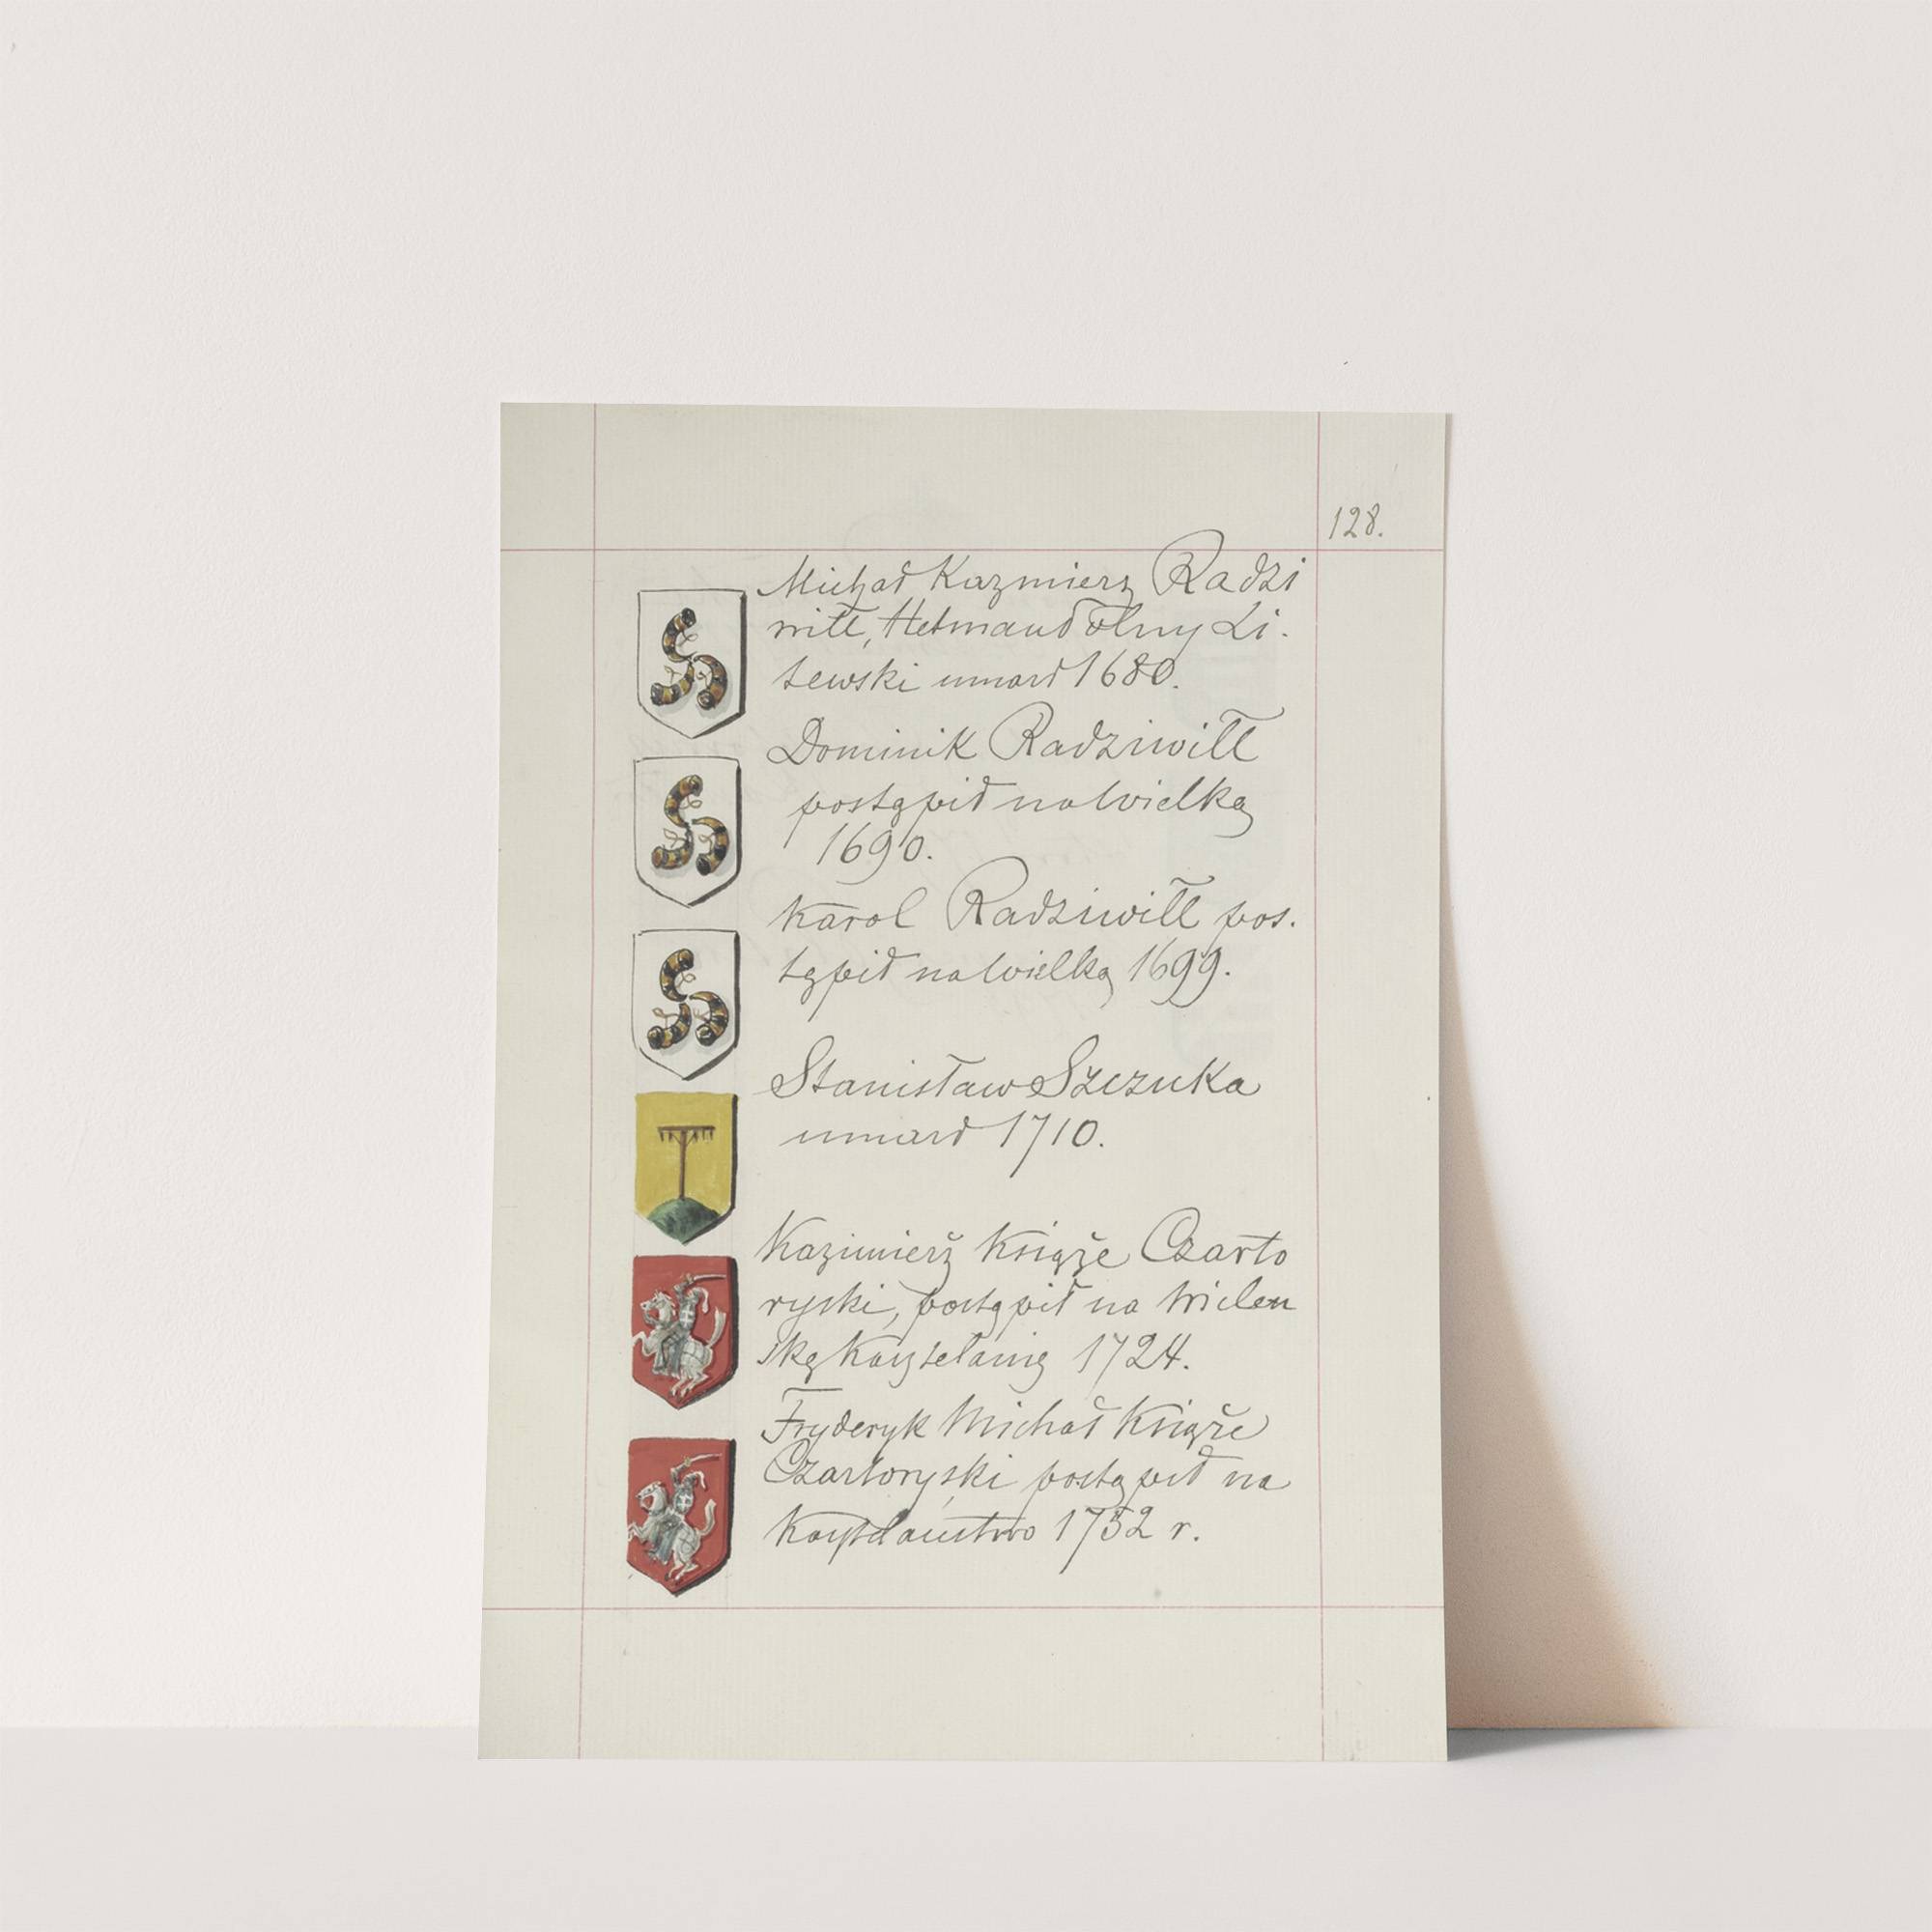 128.
Michał Kazmierz Radzi
wiłł, Hetmand Polny Li.
tewski umarł 1680.
Dominik Radziwiłł
postąpił na Wielką
1690.
Karol Radziwiłł pos.
tąpił na Wielką 1699.
Stanisław Szczuka
umarł 1710.
Kazimierz Książe Czarto
ryski, postąpił na Wilen
ską Kasztelanię 1724.
Fryderyk Michał Książe
Czartoryski postąpił na
1752 r.